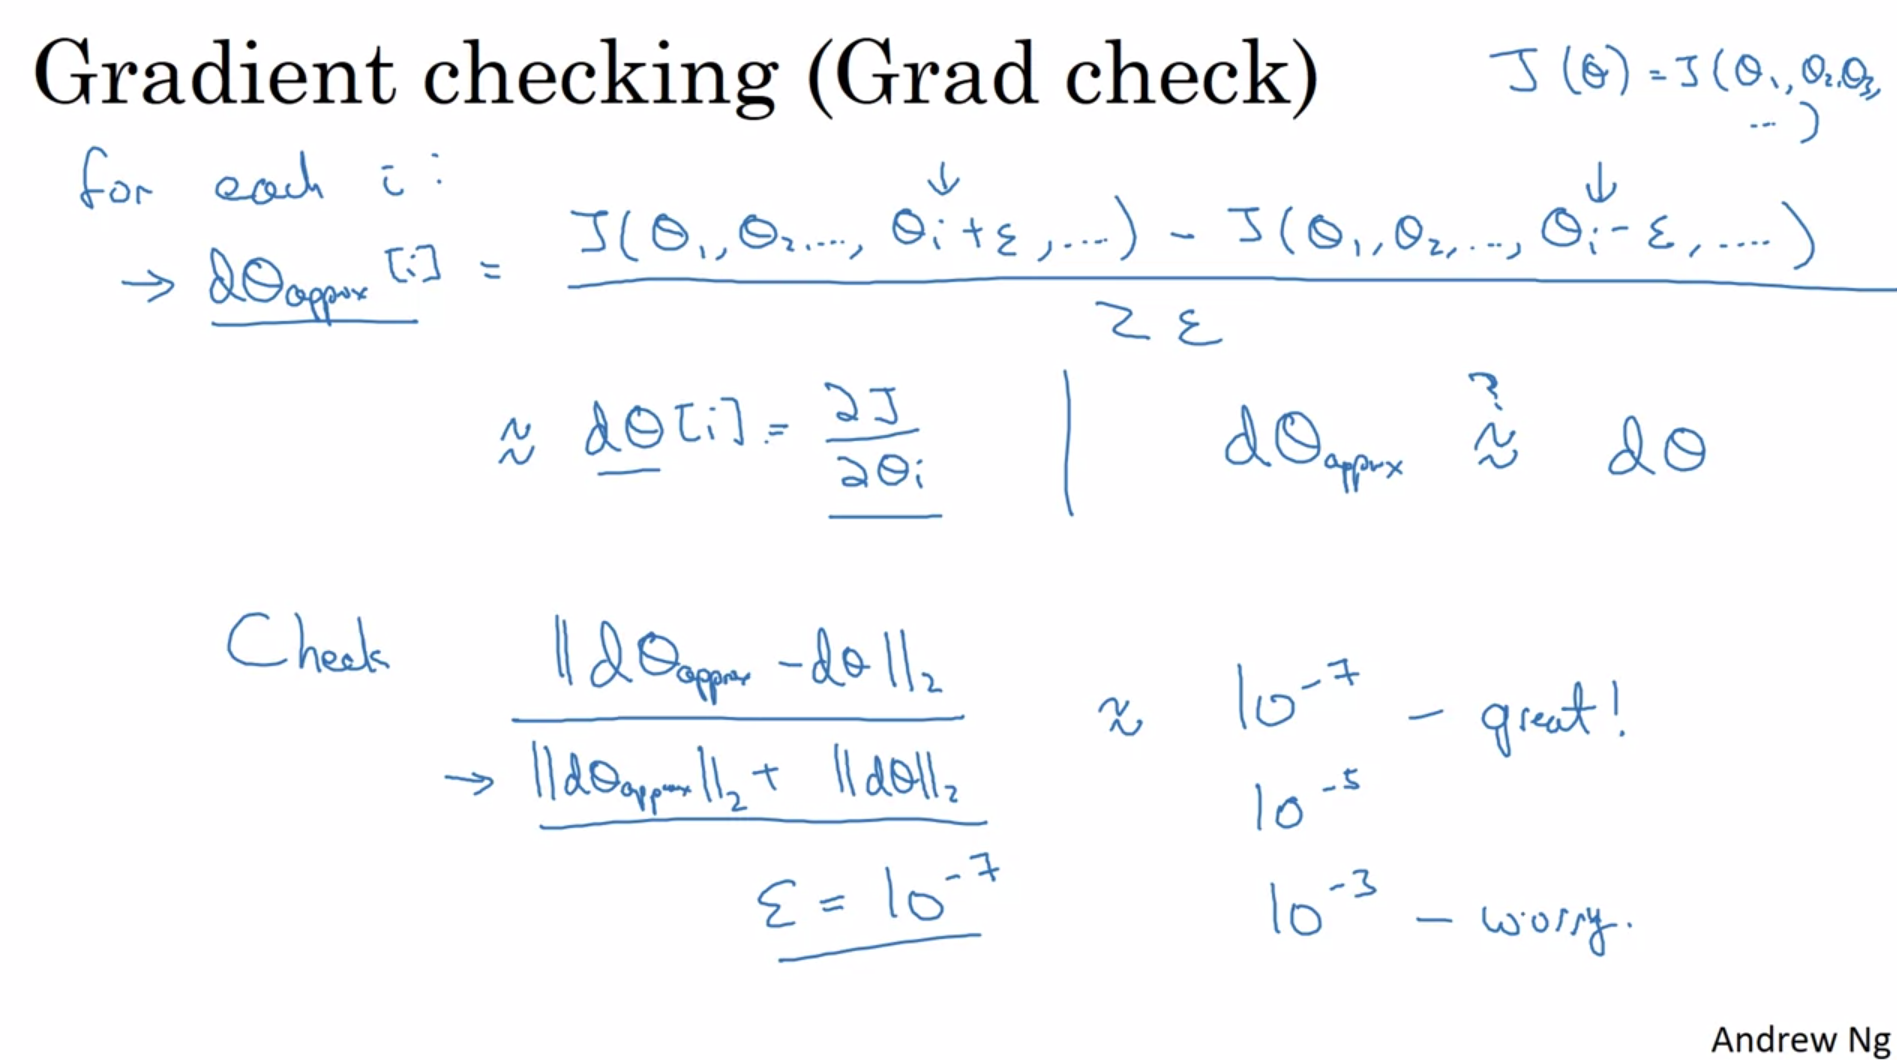 Gradient checking (Grad check)
J(θ) = J(θ₁, θ₂, θ₃, ...)
for each i:
→ dθapprox[i] = (J(θ₁, θ₂, ..., θᵢ+ε, ...) - J(θ₁, θ₂, ..., θᵢ-ε, ...)) / 2ε
≈ dθ[i] = ∂J/∂θᵢ | dθapprox ≈? dθ
Check ||dθapprox - dθ||₂ / (||dθapprox||₂ + ||dθ||₂) ≈ 10⁻⁷ - great!
→
10⁻⁵
ε = 10⁻⁷ 10⁻³ - worry.
Andrew Ng